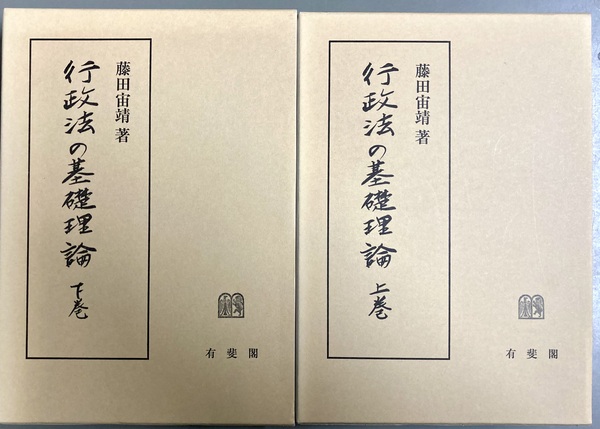 藤田宙靖 著
行政法の基礎理論 下巻
有斐閣
藤田宙靖 著
行政法の基礎理論 上巻
有斐閣